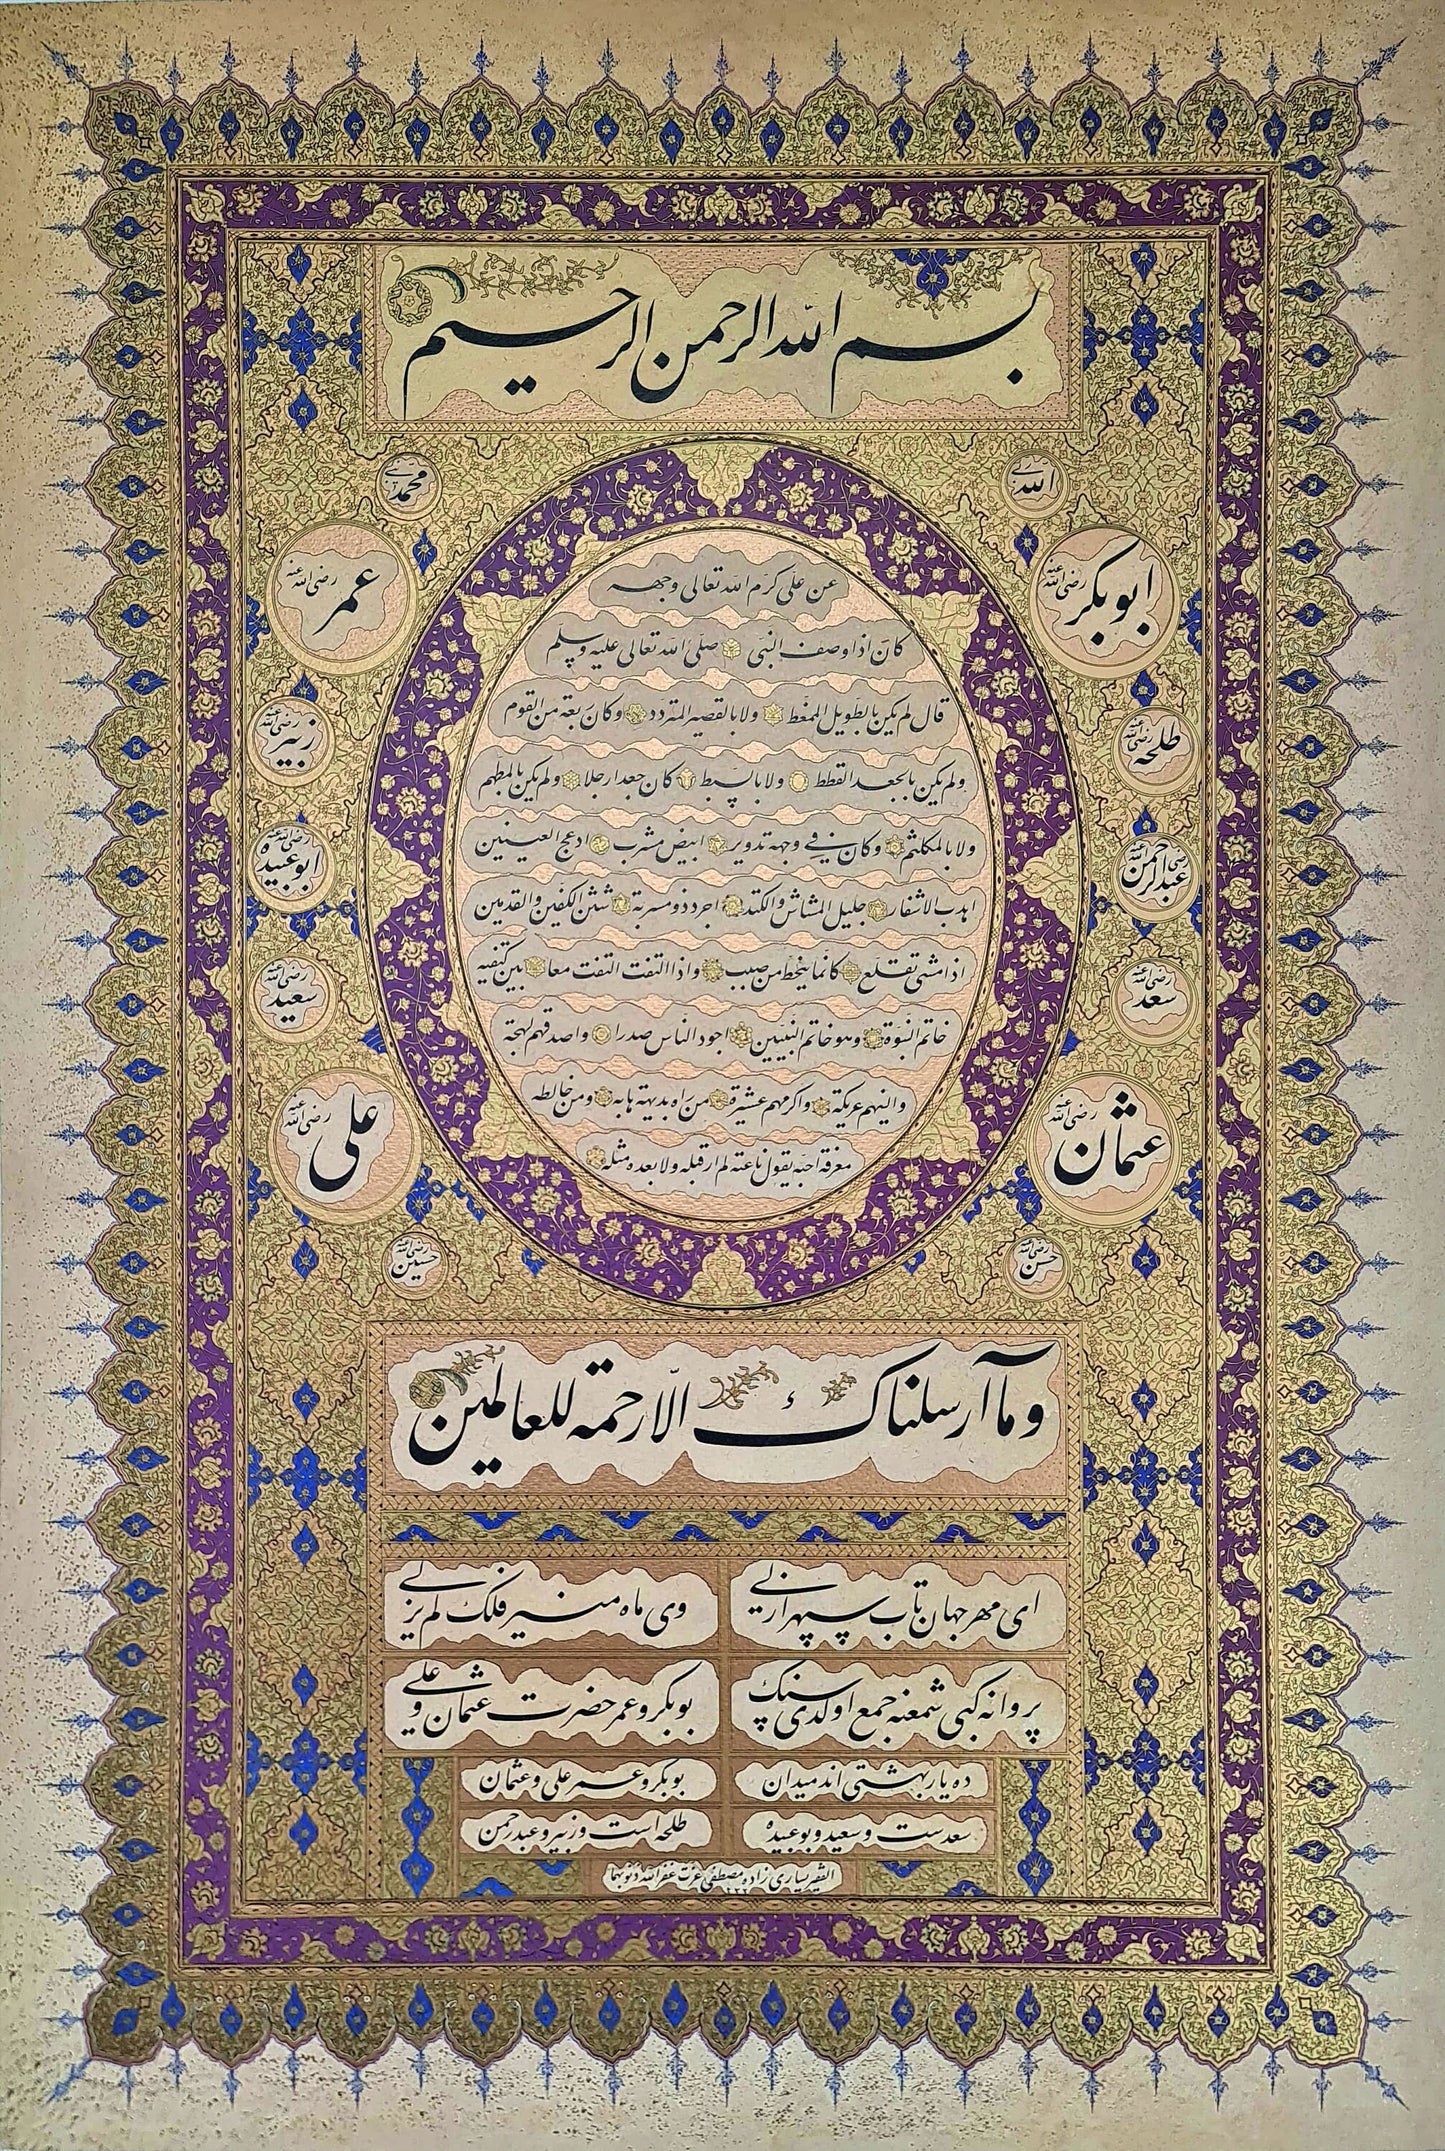 بسم الله الرحمن الرحيم
الله
محمد
ابوبكر رضى الله عنه
عمر رضى الله عنه
عن على كرم الله تعالى وجهه
كان اذا وصف النبى صلى الله تعالى عليه وسلم
قال لم يكن بالطويل الممغط ولا بالقصير المتردد وكان ربعة من القوم
ولم يكن بالجعد القطط ولا بالسبط كان جعدا رجلا ولم يكن بالمطهم
ولا بالمكلثم وكان فى وجهه تدوير ابيض مشرب ادعج العينين
اهدب الاشفار جليل المشاش والكتد اجرد ذو مسربة شثن الكفين والقدمين
اذا مشى تقلع كانما ينحط من صبب واذا التفت التفت معا بين كتفيه
خاتم النبوة وهو خاتم النبيين اجود الناس صدرا واصدقهم لهجة
والينهم عريكة واكرمهم عشيرة من راه بديهة هابه ومن خالطه
معرفة احبه يقول ناعته لم ار قبله ولا بعده مثله
طلحه رضى الله عنه
زبير رضى الله عنه
عبدالرحمن رضى الله عنه
ابوعبيده رضى الله عنه
سعد رضى الله عنه
سعيد رضى الله عنه
عثمان رضى الله عنه
على رضى الله عنه
حسن رضى الله عنه
حسين رضى الله عنه
وما ارسلناك الا رحمة للعالمين
اى مهر جهان تاب سپهر ازلى وى ماه منير فلك لم يزلى
پروانه كبى شمعنه جمع اولدى سنك بوبكر و عمر حضرت عثمان و على
ده يار بهشتى اند ميدان بوبكر و عمر على و عثمان
سعدست و سعيد و بوعبيده طلحه است و زبير و عبدرحمن
الفقير يسارى زاده مصطفى عزت غفر الله ذنوبهما